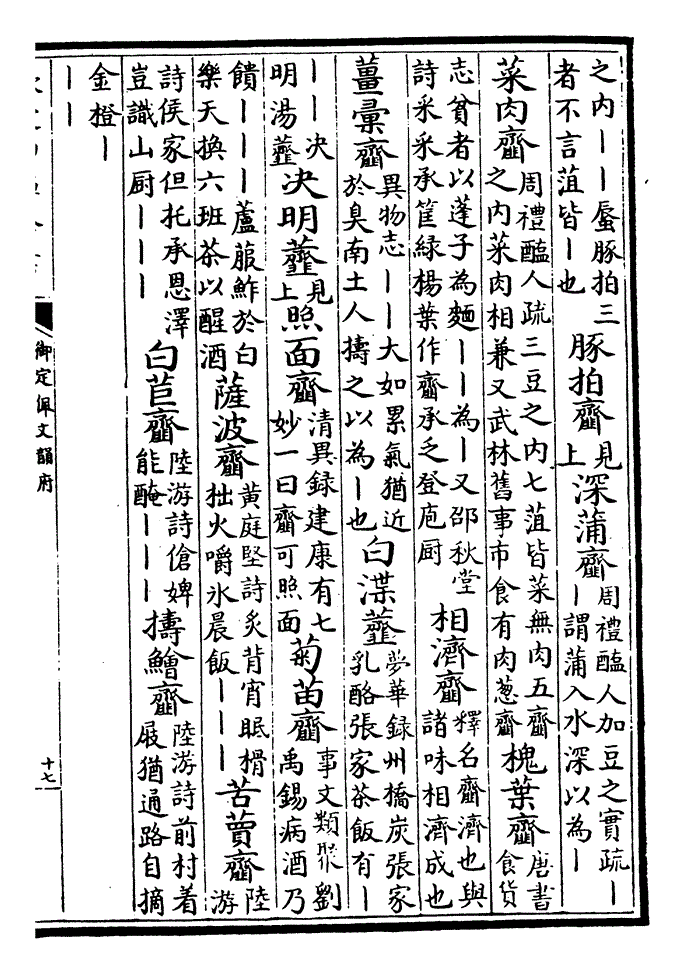 之内丨丨蜃豚拍三者不言菹皆丨也 豚拍齏 見上 深蒲齏 周禮醢人加豆之實疏丨丨謂蒲入水深以為丨
菜肉齏 周禮醢人疏三豆之内七菹皆菜無肉五齏之内菜肉相兼又武林舊事市食有肉葱齏 槐葉齏 唐書食貨
志貧者以蓬子為麵丨丨為丨又邵秋堂詩采采承筐緑楊葉作齏承乏登庖厨 相濟齏 釋名齏濟也與諸味相濟成也
薑彚齏 異物志丨丨大如累氣猶近於臭南土人擣之以為丨也 白渫虀 夢華録州橋炭張家乳酪張家茶飯有丨
丨丨决明湯虀 决明虀 見上 照面齏 清異録建康有七妙一曰齏可照面 菊苗齏 事文類聚劉禹錫病酒乃
饋丨丨丨蘆菔鮓於白樂天換六班茶以醒酒 薩波齏 黄庭堅詩炙背宵眠榾柮火嚼氷晨飯丨丨丨 苦蕒齏 陸游
詩侯家但托承恩澤豈識山厨丨丨丨 白苣齏 陸游詩傖婢能醃丨丨丨 擣鱠齏 陸游詩前村着屐猶通路自摘
金橙丨丨丨
御定佩文韻府
十七